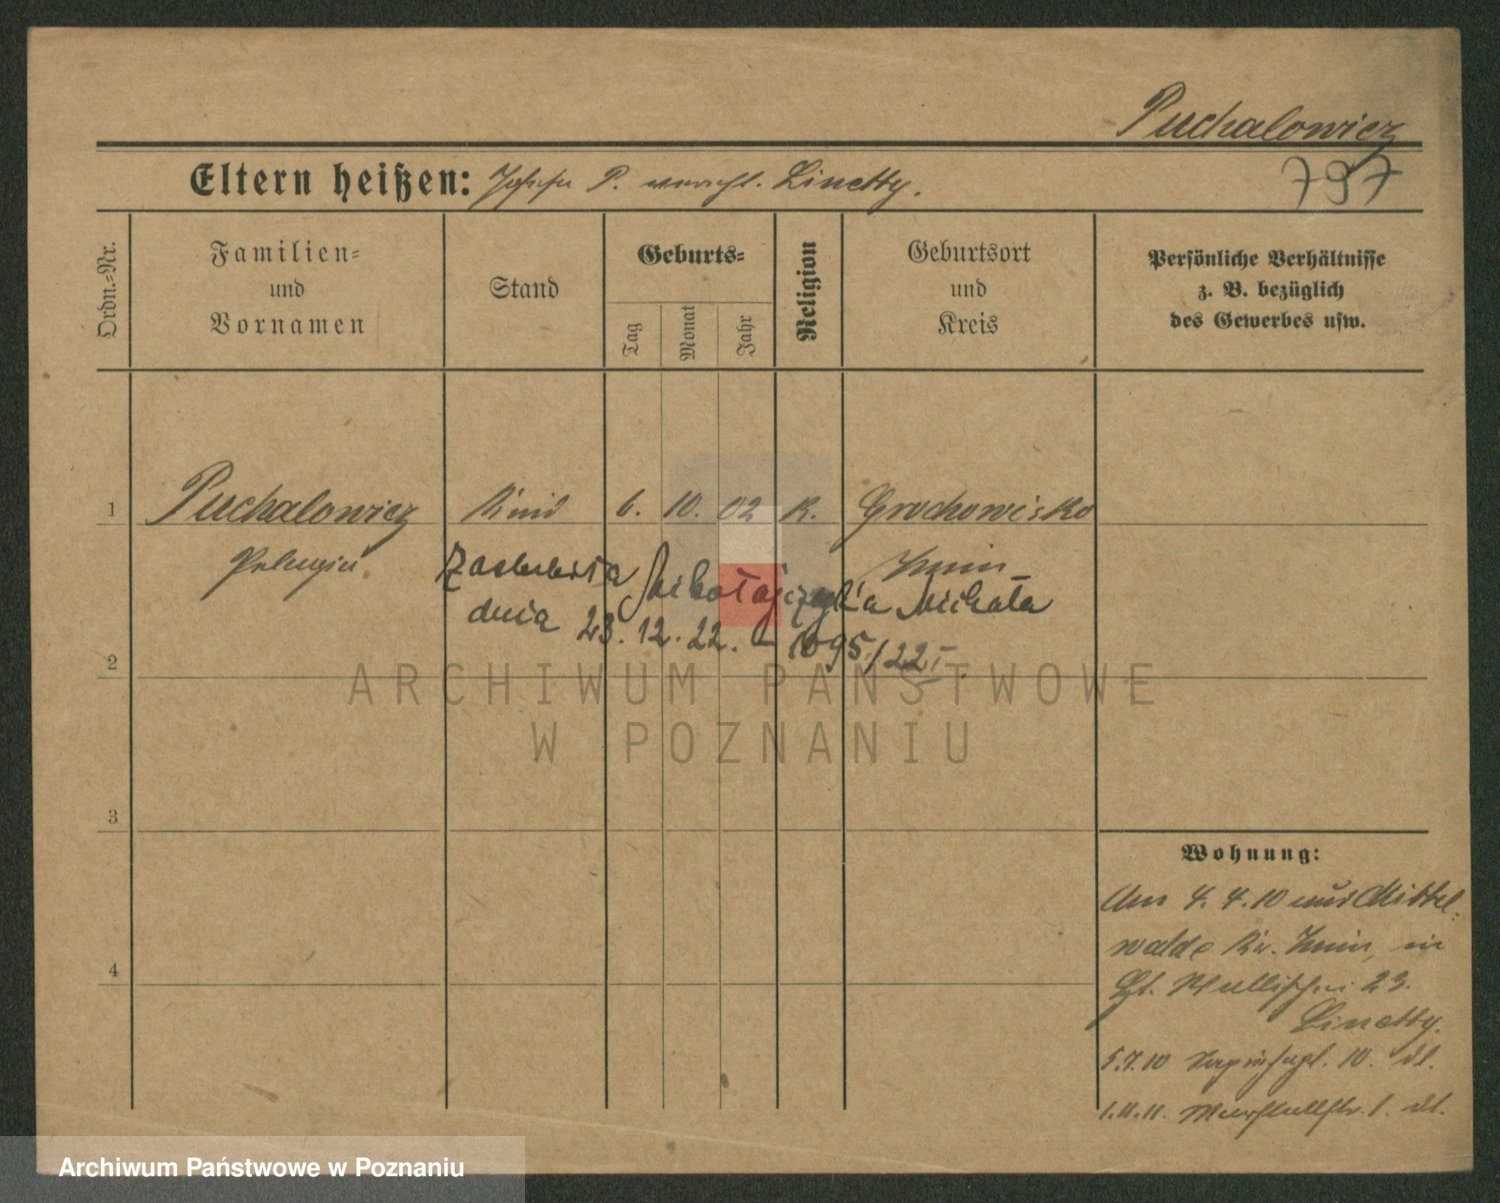 Puchalowicz
797
Eltern heißen: Josefa P. verehl. Linetty.
Ordn.-Nr.
Familien-
und
Vornamen
Stand
Geburts-
Tag
Monat
Jahr
Religion
Geburtsort
und
Kreis
Persönliche Verhältnisse
z. B. bezüglich
des Gewerbes usw.
1 Puchalowicz Kind 6. 10. 02 K. Grochowisko
Pelagia Znin
Zaślubiła Mikołajczyk'a Michała
dnia 23.12.22. – 1095/22 I.
2
ARCHIWUM PAŃSTWOWE
W POZNANIU
3
4
Wohnung:
Am 4. 4. 10 aus Mittel-
walde Kr. Znin, in
Wallischei 23.
Linetty.
5.7.10 10. dl.
1.11.11. 1. dl.
Archiwum Państwowe w Poznaniu